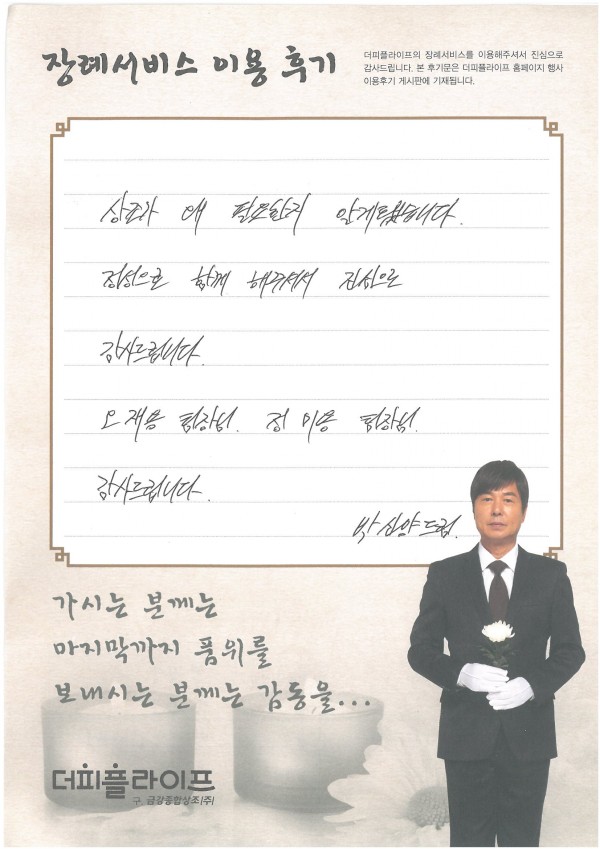 장례서비스 이용 후기
더피플라이프의 장례서비스를 이용해주셔서 진심으로
감사드립니다. 본 후기문은 더피플라이프 홈페이지 행사
이용후기 게시판에 기재됩니다.
상조가 왜 필요한지 알게됐습니다.
정성으로 함께 해주셔서 진심으로
감사드립니다.
오재용 팀장님. 정이용 팀장님.
감사드립니다.
박신양드림.
가시는 분께는
마지막까지 품위를
보내시는 분께는 감동을...
더피플라이프
구. 금강종합상조(주)